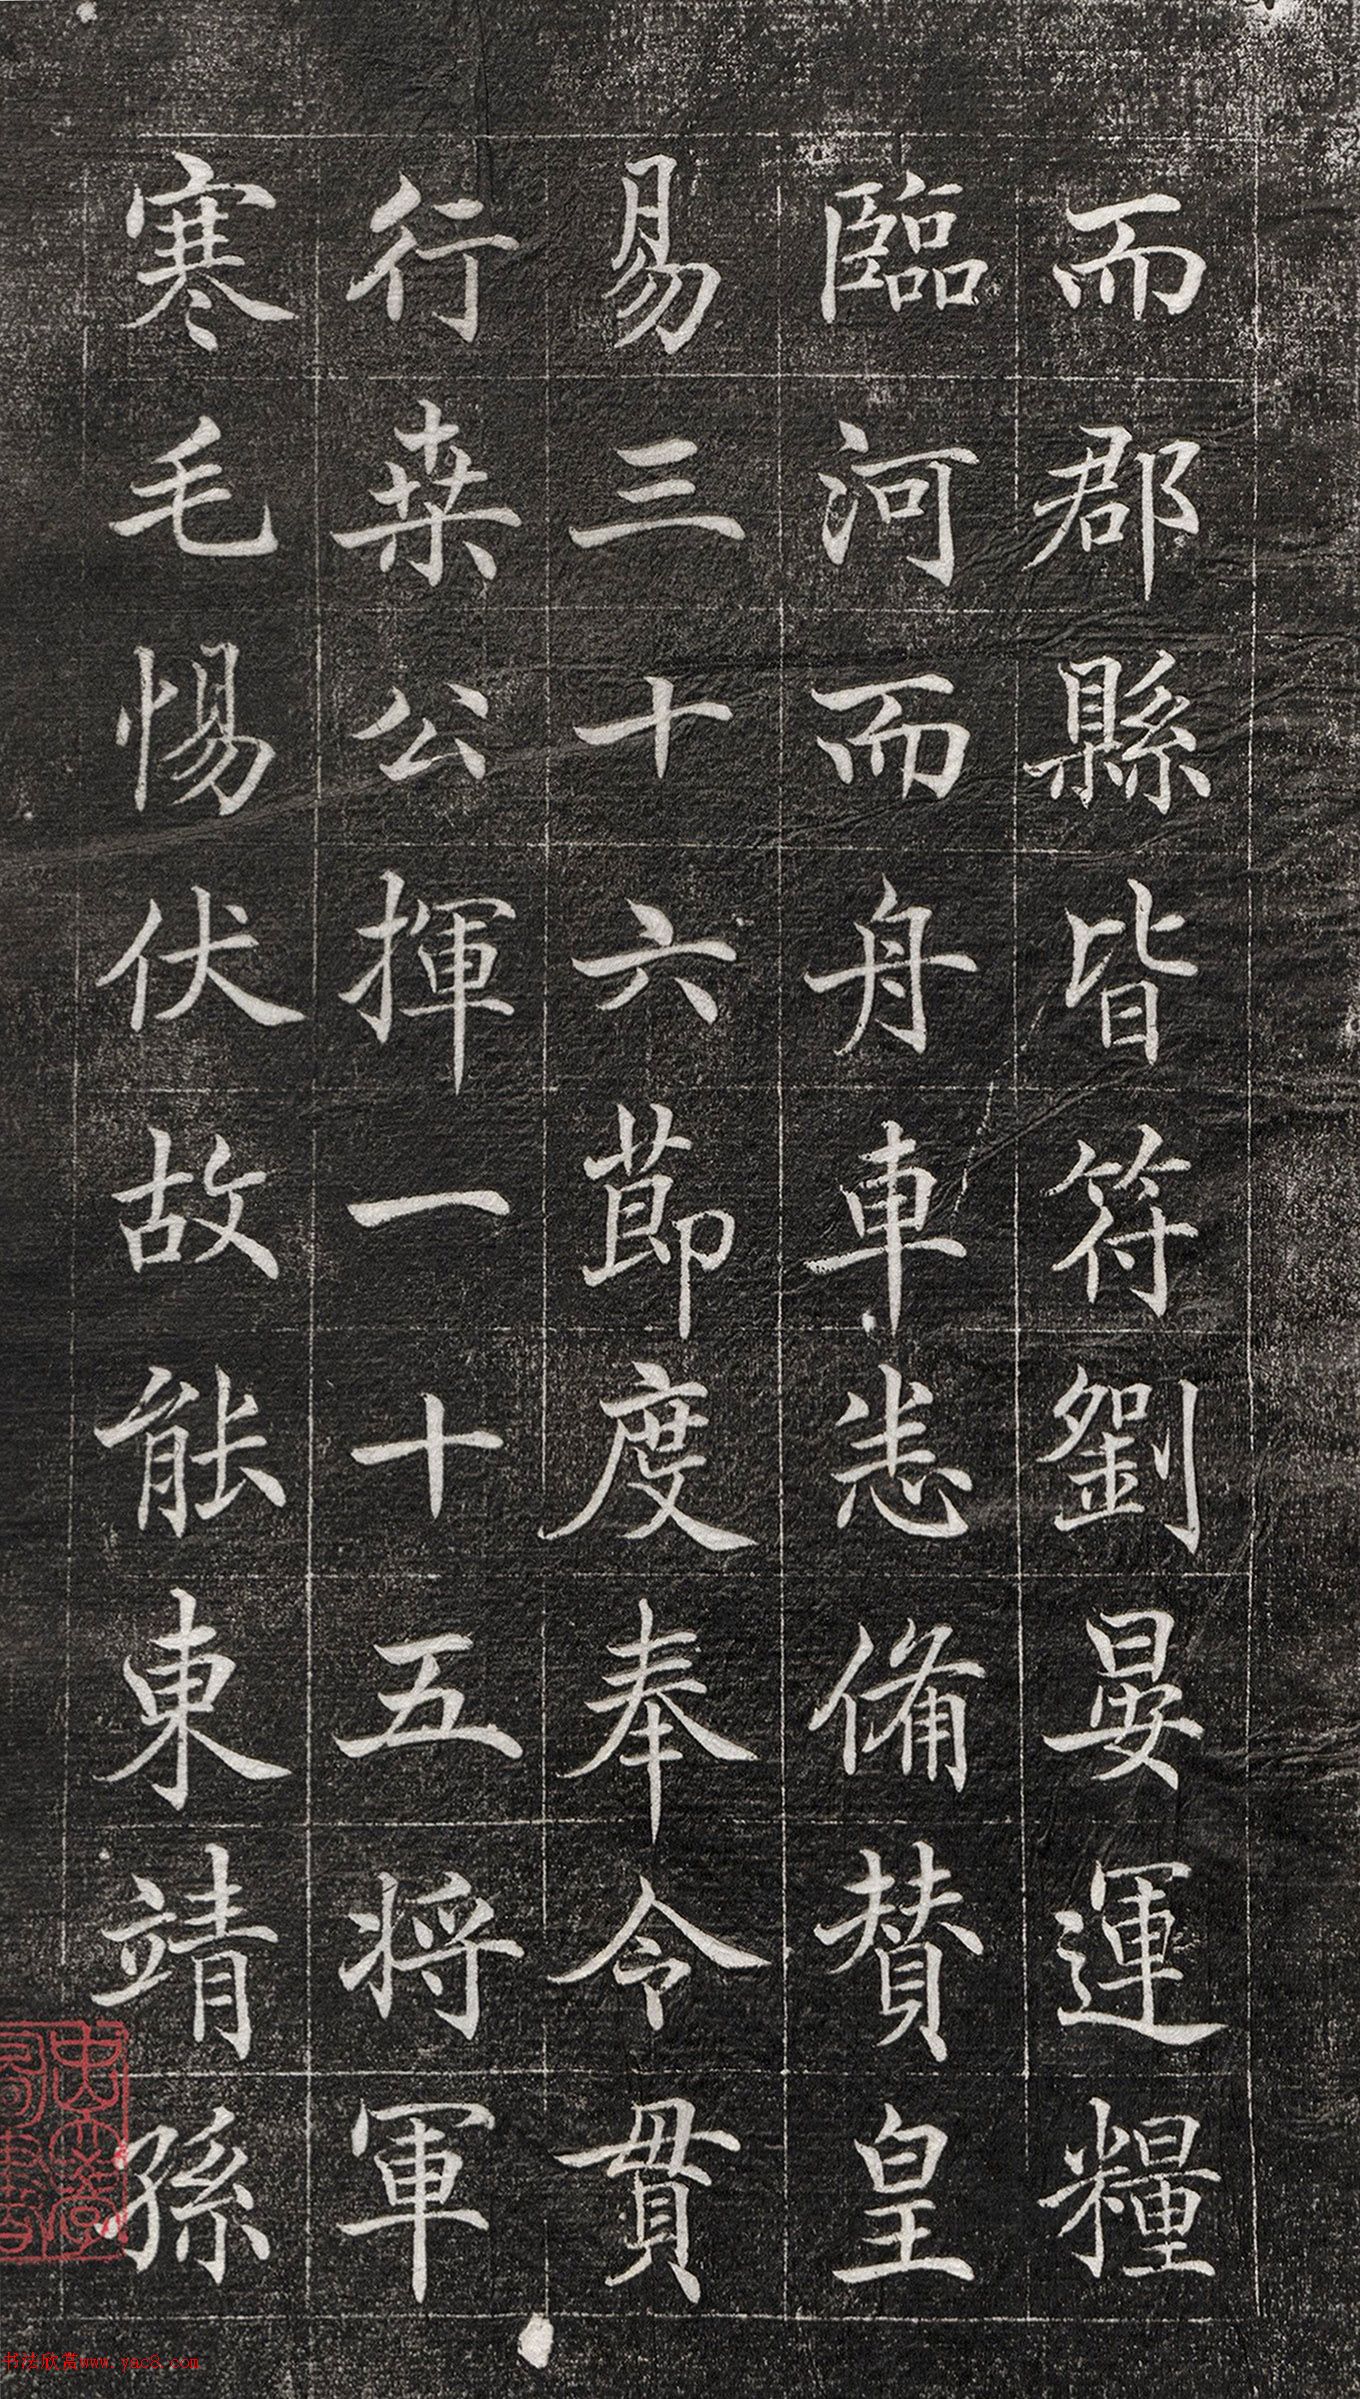 而郡縣皆符劉晏運糧
臨河而舟車悉備贊皇
易三十六節度奉令貫
行桒公揮一十五將軍
寒毛惕伏故能東靖孫
书法欣赏www.yac8.com